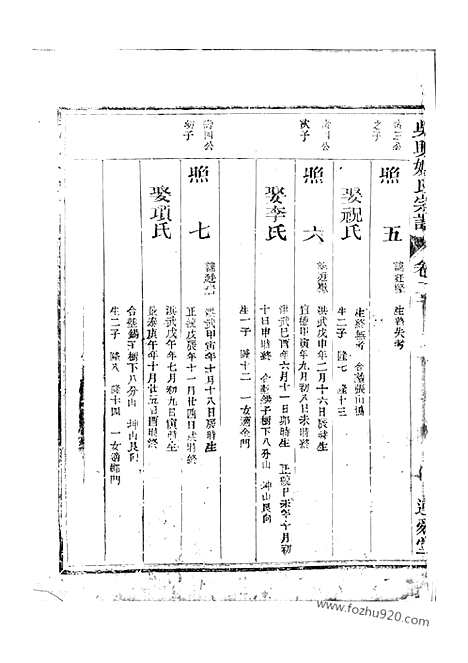 吳興姚氏宗譜 卷
照五
生塟失考
娶祝氏
生塟無考 合塟張山塢
生二子 隆七 隆十三
公四
次子
照六
洪武戊申年二月十六日辰時生
宣德甲寅年九月初八日未時終
娶李氏
洪武己酉年六月十一日卯時生 正統己未年十月初
十日申時終 合塟樹下八分山 坤山艮向
生一子 隆十二 一女適金門
公四
幼子
照七
洪武甲寅年十月十八日辰時生
正統戊辰年十一月廿四日戌時終
娶項氏
洪武戊午年七月初九日寅時生
景泰庚午年十月廿五日酉時終
合塟錫子樹下八分山 坤山艮向
生二子 隆八 隆十四 一女適門
www.fozhu920.com